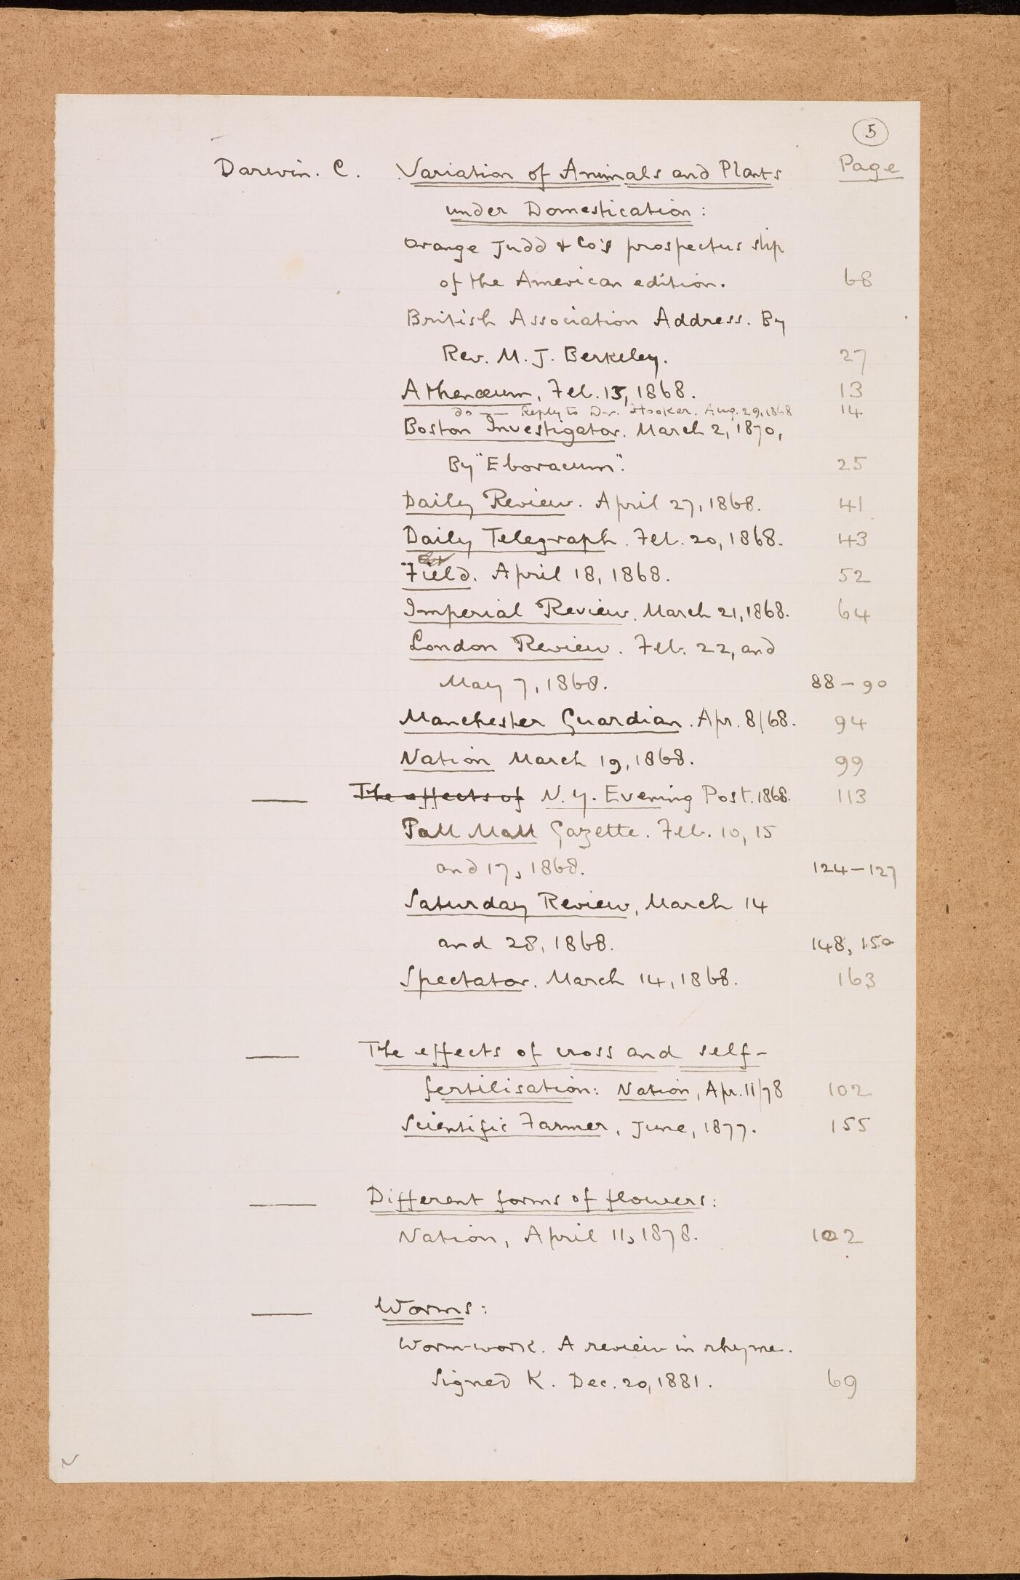 5
Darwin. C. Variation of Animals and Plants Page
under Domestication:
Orange Judd & Co's prospectus slip
of the American edition. 68
British Association Address. By
Rev. M. J. Berkeley. 27
Athenæum, Feb. 15, 1868. 13
do — Reply to Dr. Hooker. Aug. 29, 1868 14
Boston Investigator. March 2, 1870,
By "Eboracum". 25
Daily Review. April 27, 1868. 41
Daily Telegraph. Feb. 20, 1868. 43
Field. April 18, 1868. 52
Imperial Review. March 21, 1868. 64
London Review. Feb. 22, and
May 7, 1868. 88–90
Manchester Guardian. Apr. 8/68. 94
Nation March 19, 1868. 99
— The effects of N.Y. Evening Post. 1868. 113
Pall Mall Gazette. Feb. 10, 15
and 17, 1868. 124–127
Saturday Review, March 14
and 28, 1868. 148, 150
Spectator. March 14, 1868. 163
— The effects of cross and self-
fertilisation: Nation, Apr. 11/78 102
Scientific Farmer, June, 1877. 155
— Different forms of flowers:
Nation, April 11, 1878. 102
— Worms:
Worm-work. A review in rhyme.
Signed K. Dec. 20, 1881. 69